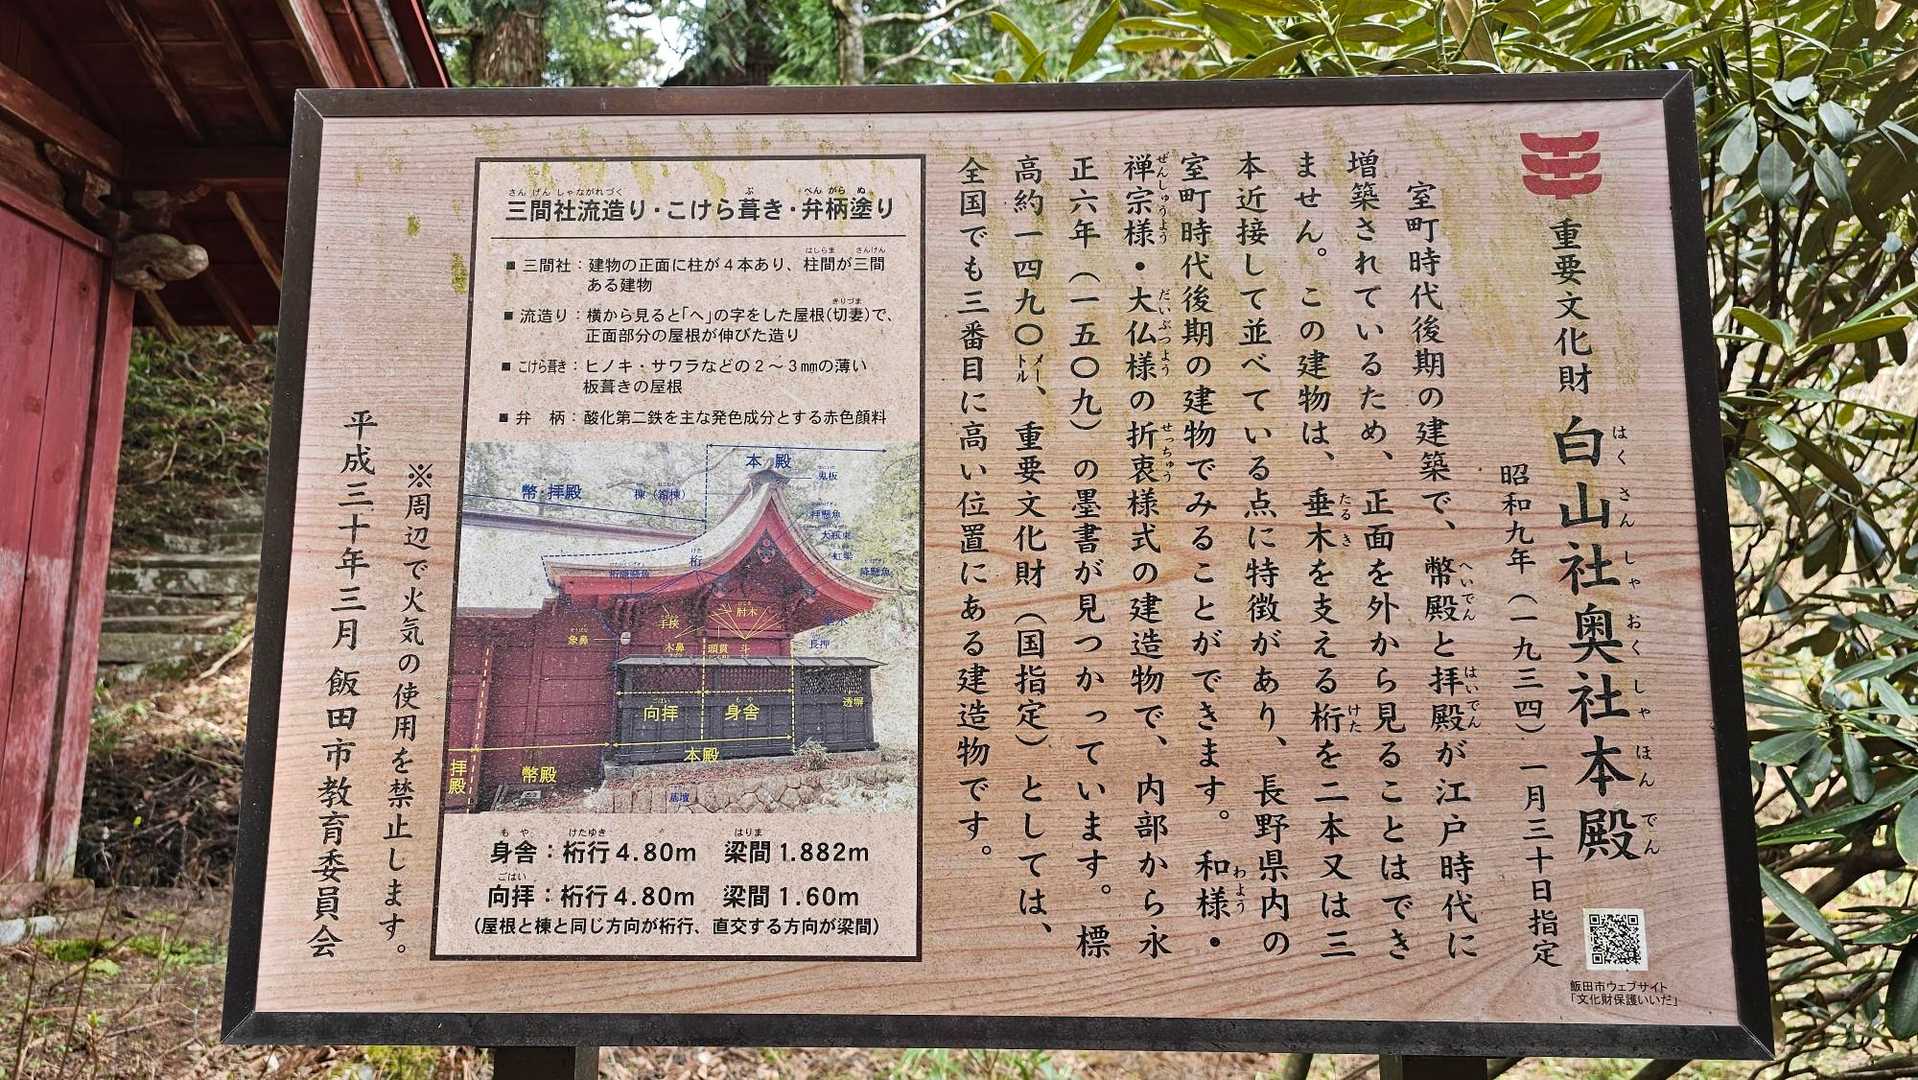 重要文化財 白山社奥社本殿
はくさんしゃおくしゃほんでん
昭和九年（一九三四）一月三十日指定
室町時代後期の建築で、幣殿と拝殿が江戸時代に
へいでん はいでん
増築されているため、正面を外から見ることはでき
ません。この建物は、垂木を支える桁を二本又は三
たるき けた
本近接して並べている点に特徴があり、長野県内の
室町時代後期の建物でみることができます。和様・
わよう
禅宗様・大仏様の折衷様式の建造物で、内部から永
ぜんしゅうよう だいぶつよう せっちゅう
正六年（一五〇九）の墨書が見つかっています。標
高約一四九〇メートル、重要文化財（国指定）としては、
全国でも三番目に高い位置にある建造物です。
さんげんしゃながれづく ぶ べんがらぬ
三間社流造り・こけら葺き・弁柄塗り
はしらま さんげん
■ 三間社：建物の正面に柱が４本あり、柱間が三間
ある建物
きりづま
■ 流造り：横から見ると「へ」の字をした屋根（切妻）で、
正面部分の屋根が伸びた造り
■ こけら葺き：ヒノキ・サワラなどの２～３㎜の薄い
板葺きの屋根
■ 弁　柄：酸化第二鉄を主な発色成分とする赤色顔料
本 殿
鬼板
幣・拝殿
棟（箱棟）
拝懸魚
大瓶束
虹梁
桁
降懸魚
桁隠懸魚
肘木
手挟
象鼻
木鼻
頭貫
斗
長押
向拝
身舎
透塀
本殿
拝殿
幣殿
基壇
もや けたゆき はりま
身舎：桁行4.80m 梁間1.882m
ごはい
向拝：桁行4.80m 梁間1.60m
（屋根と棟と同じ方向が桁行、直交する方向が梁間）
※周辺で火気の使用を禁止します。
平成三十年三月 飯田市教育委員会
飯田市ウェブサイト
「文化財保護いいだ」